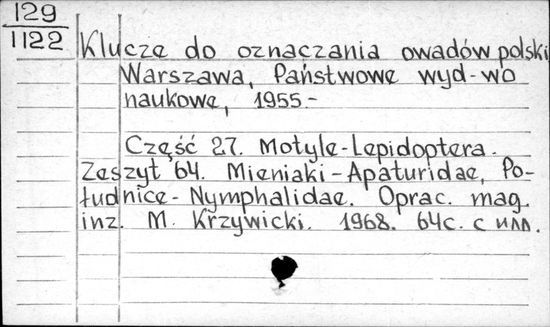 129
1122
Klucze do oznaczania owadów polski
Warszawa, Państwowe wyd-wo
naukowe, 1955-
Część 27. Motyle-Lepidoptera.
Zeszyt 64. Mieniaki-Apaturidae, Po-
łudnice-Nymphalidae. Oprac. mag.
inz. M. Krzywicki. 1968. 64c. с илл.